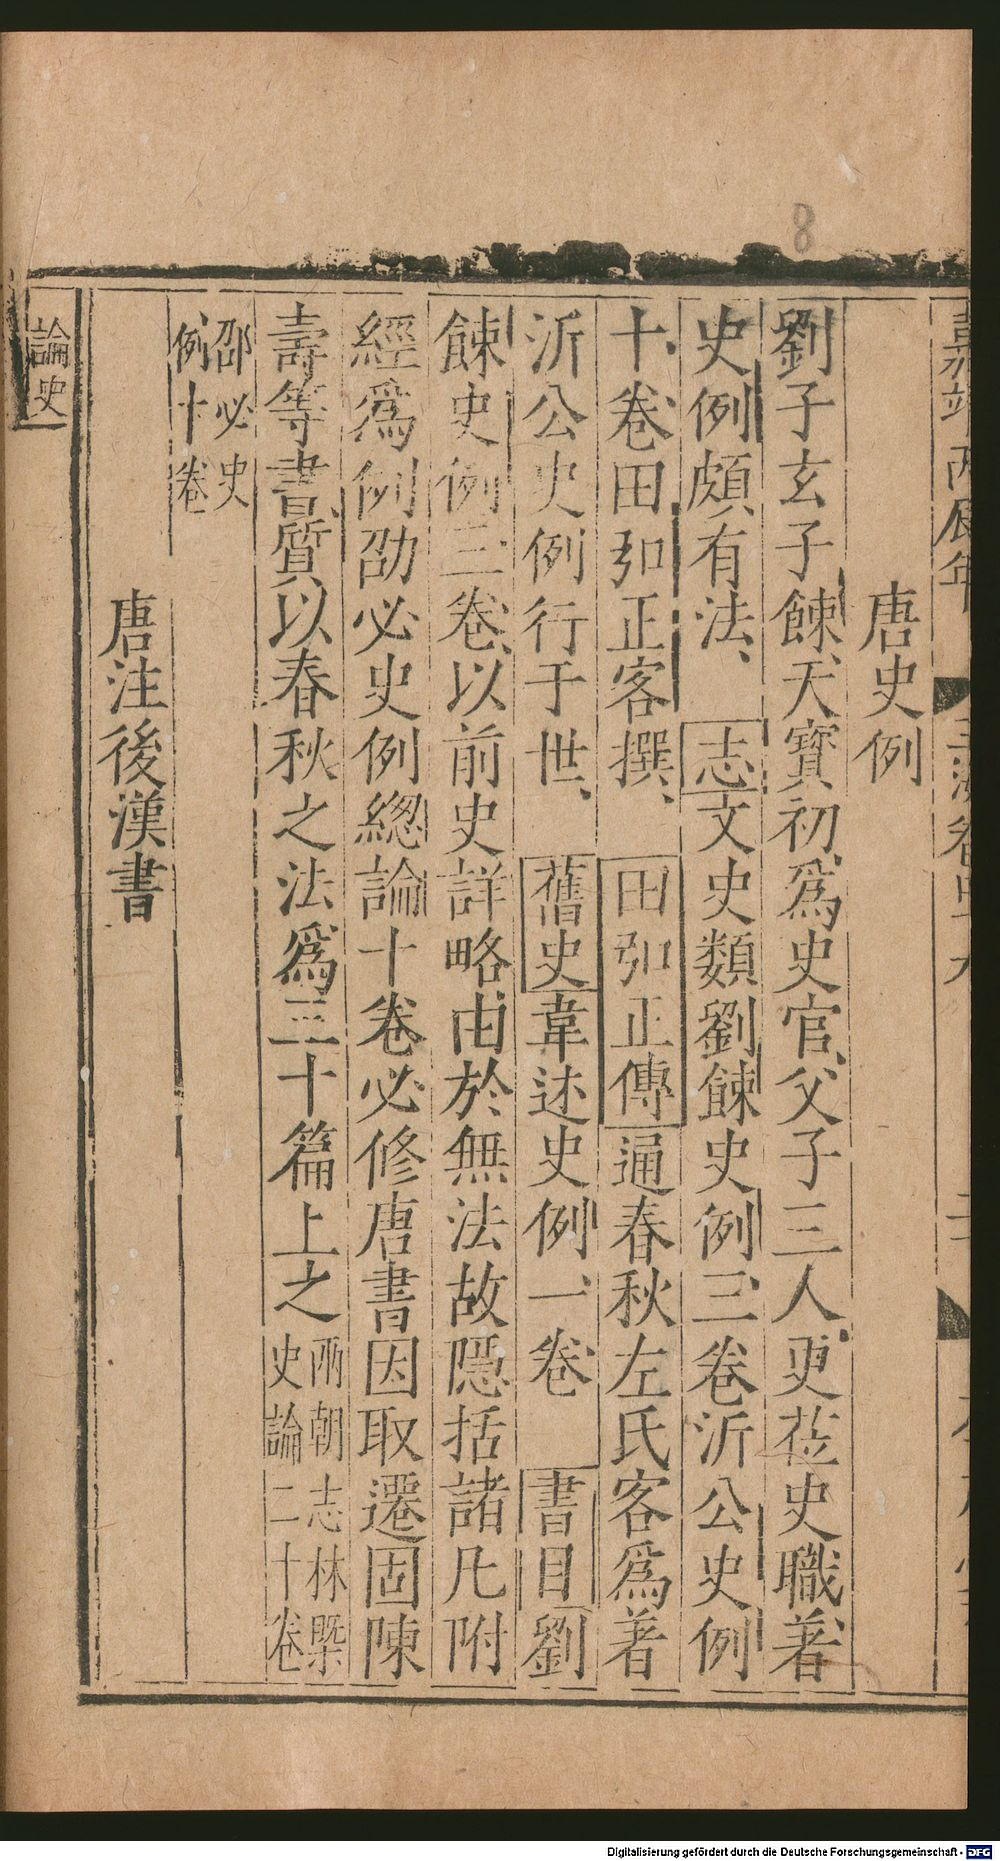 嘉靖丙辰年
唐史例
劉子玄子餗、天寶初、爲史官、父子三人、更莅史職、著、
史例頗有法、志文史類劉餗史例三卷沂公史例
十卷田弘正客撰、田弘正傳通春秋左氏客爲著
沂公史例行于世、舊史韋述史例一卷書目劉
餗史例三卷、以前史詳略由於無法故隱括諸凡附
經爲例劭必史例總論十卷必修唐書因取遷固陳
壽等書、質以春秋之法爲三十篇上之兩朝志林槩
史論二十卷
邵必史
例十卷
唐注後漢書
論史
8
Digitalisierung gefördert durch die Deutsche Forschungsgemeinschaft - DFG